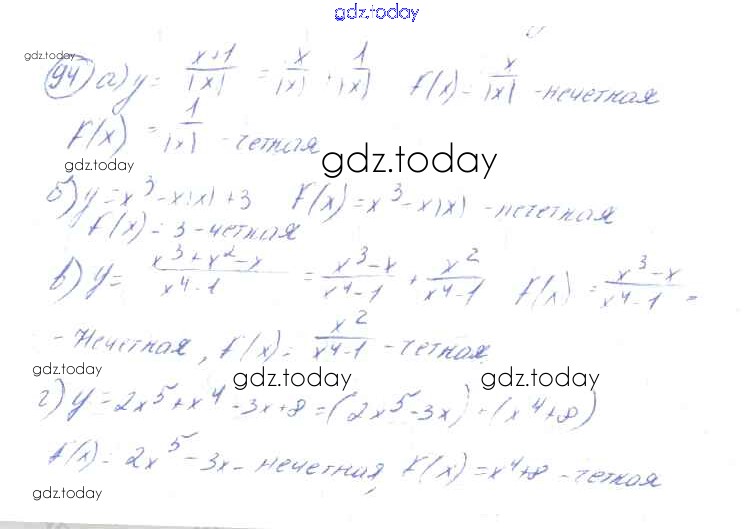 gdz.today
gdz.today
94 а) y = (x+1)/|x| = x/|x| + 1/|x| f(x) = x/|x| - нечетная
f(x) = 1/|x| - четная
gdz.today
gdz.today
б) y = x³ - x|x| + 3 f(x) = x³ - x|x| - нечетная
f(x) = 3 - четная
в) y = (x³+x²-x)/(x⁴-1) = (x³-x)/(x⁴-1) + x²/(x⁴-1) f(x) = (x³-x)/(x⁴-1) -
- нечетная, f(x) = x²/(x⁴-1) - четная
gdz.today
gdz.today
gdz.today
г) y = 2x⁵ + x⁴ - 3x + 8 = (2x⁵ - 3x) + (x⁴ + 8)
f(x) = 2x⁵ - 3x - нечетная, f(x) = x⁴ + 8 - четная
gdz.today
gdz.today